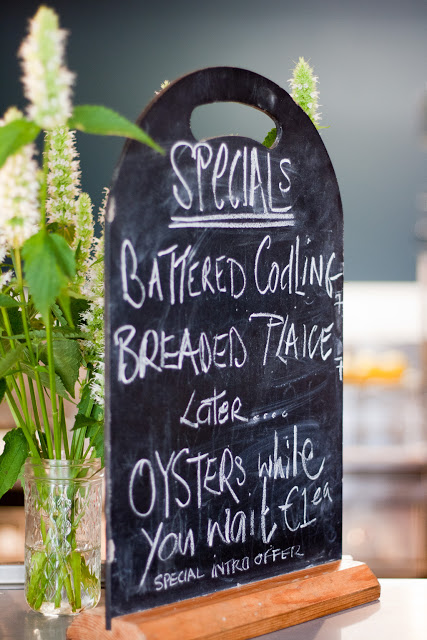 SPECIALS
BATTERED CODLING 7
BREADED PLAICE 7
Later....
OYSTERS while
you wait £1ea
SPECIAL INTRO OFFER